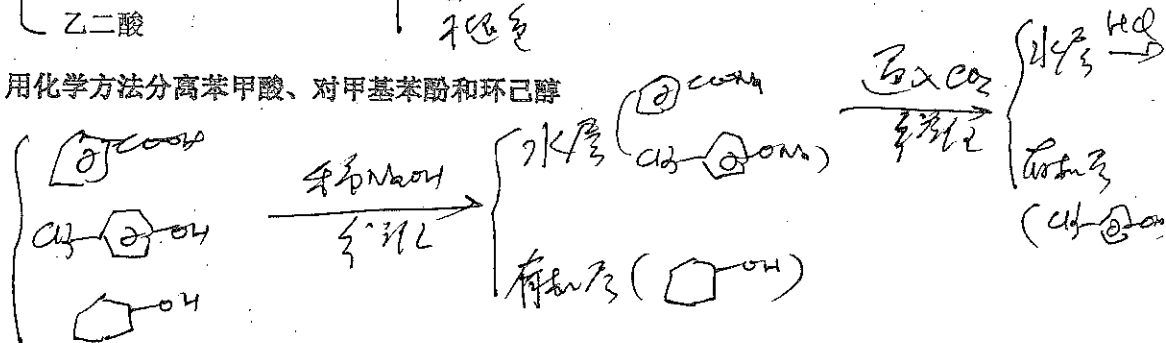 乙二酸
不退色
用化学方法分离苯甲酸、对甲基苯酚和环己醇
COOH
CH3 OH
OH
稀NaOH
分液
水层 ( COONa
CH3 ONa )
有机层 ( OH )
通入CO2
水层 HCl
有机层
( CH3